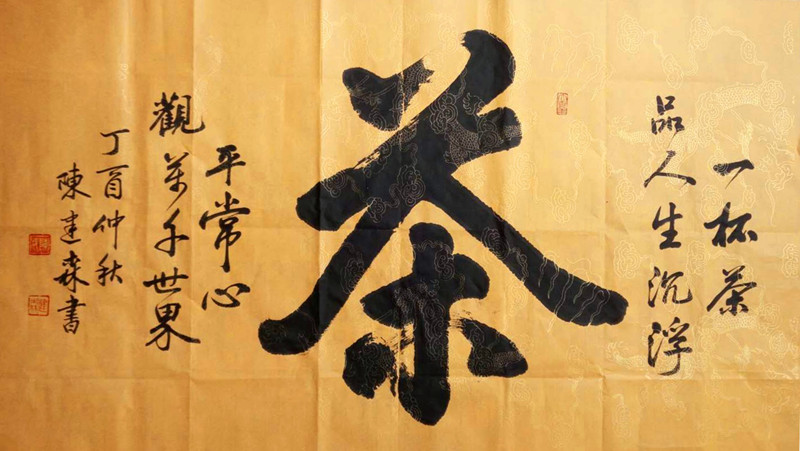 一杯茶
品人生沉浮
茶
平常心
觀萬千世界
丁酉仲秋
陳建森書